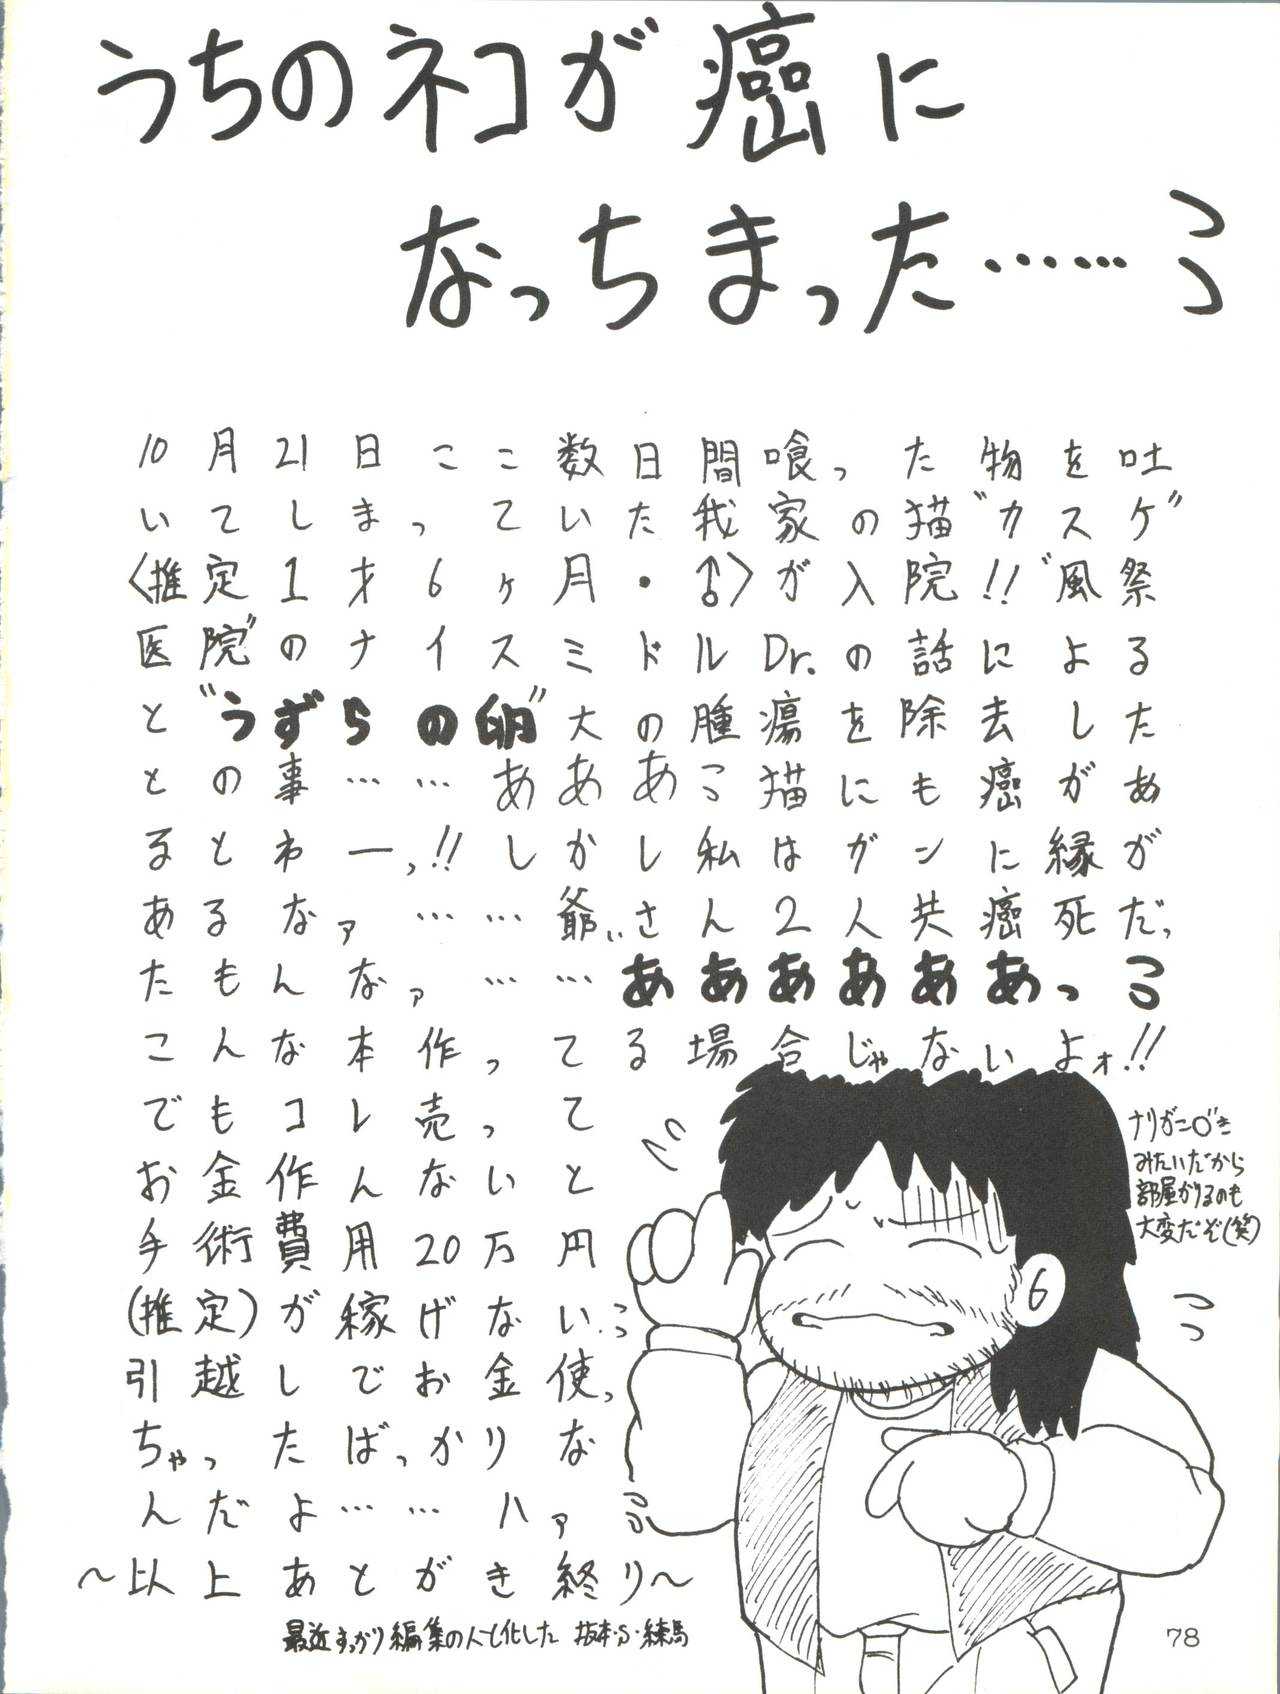 うちのネコが癌に
なっちまった……
10月21日ここ数日間喰った物を吐
いてしまっていた我家の猫"カスケ"
〈推定1才6ヶ月・♂〉が入院!!"風祭
医院"のナイスミドルDr.の話による
と"うずらの卵"大の腫瘍を除去した
との事……あああ猫にも癌があ
るとわーっ!!しかし私はガンに縁が
あるなァ……爺ぃさん2人共癌死だっ
たもんなァ……ああああああっ
こんな本作ってる場合じゃないよォ!!
でもコレ売って
お金作んないと
手術費用20万円
(推定)が稼げない
引越しでお金使っ
ちゃったばっかりな
んだよ……ハァ
～以上あとがき終り～
ナリがこ
みたいだから
部屋かりるのも
大変だぞ(笑)
6
最近すっかり編集の人と化した 坂本・S・練馬
78